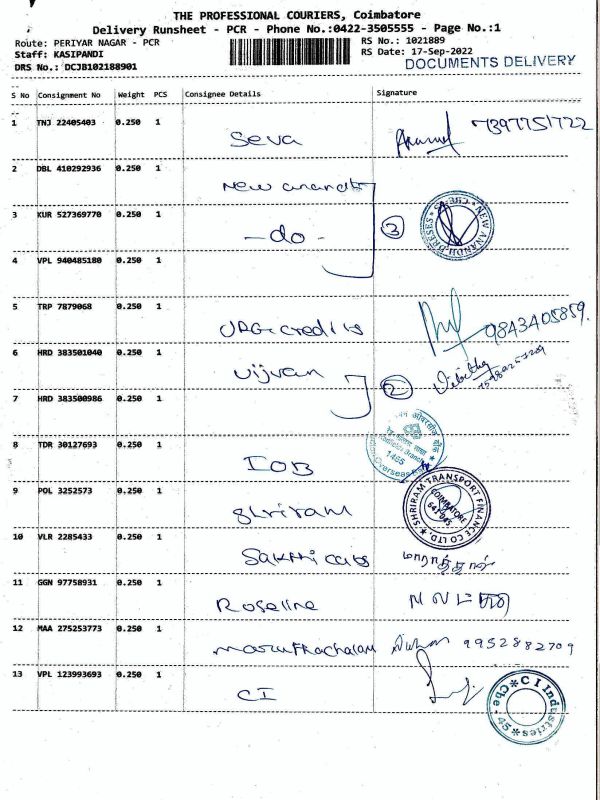 THE PROFESSIONAL COURIERS, Coimbatore
Delivery Runsheet - PCR - Phone No.:0422-3505555 - Page No.:1
Route: PERIYAR NAGAR - PCR
Staff: KASIPANDI
DRS No.: DCJB102188901
RS No.: 1021889
RS Date: 17-Sep-2022
DOCUMENTS DELIVERY
S No Consignment No Weight PCS Consignee Details Signature
1 TNJ 22405403 0.250 1 Seva 7397751722
2 DBL 410292936 0.250 1 New anandh
3 KUR 527369770 0.250 1 - do - 3 NEW ANANDH DRESES
4 VPL 940485180 0.250 1
5 TRP 7879068 0.250 1 credits 9843405859.
6 HRD 383501040 0.250 1 Vijvan 2
7 HRD 383500986 0.250 1
8 TDR 30127693 0.250 1 IOB 1465
9 POL 3252573 0.250 1 Shriram SHRIRAM TRANSPORT FINANCE CO LTD. COIMBATORE 641 045
10 VLR 2285433 0.250 1 Sakthi cabs
11 GGN 97758931 0.250 1 Roseline
12 MAA 275253773 0.250 1 Maruthachalam 9952882709
13 VPL 123993693 0.250 1 CI CI Industries Cbe - 45